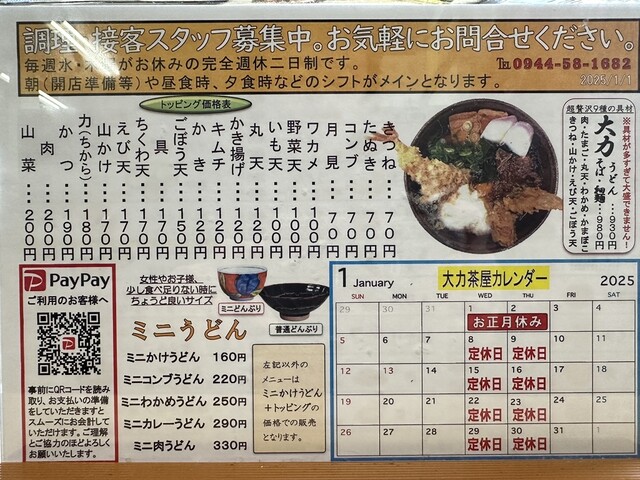 調理・接客スタッフ募集中。お気軽にお問合せください。
毎週水・木曜がお休みの完全週休二日制です。
℡0944-58-1682
朝(開店準備等)や昼食時、夕食時などのシフトがメインとなります。
2025/1/1
トッピング価格表
きつね・・70円
たぬき・・70円
コンブ・・・70円
月見・・・70円
ワカメ・・100円
野菜天・・100円
いも天・・100円
具・・・100円
丸天・・・120円
かき揚げ・120円
キムチ・・120円
かき・・・120円
ごぼう天・150円
ちくわ天・170円
えび天・・170円
山かけ・・170円
力(ちから)・180円
かつ・・・190円
肉・・・・200円
山菜・・・200円
超贅沢9種の具材
大力うどん・・・930円
そば・細麺・・980円
※具材が多すぎて大盛できません!
肉・たまご・丸天・わかめ・かまぼこ
きつね・山かけ・えび天・ごぼう天
PayPay
ご利用のお客様へ
事前にQRコードを読み
取り、お支払いの準備
をしていただきますと
スムーズにお会計して
いただけます。ご理解
とご協力のほどよろしく
お願いいたします。
女性やお子様、
少し食べ足りない時に
ちょうど良いサイズ
ミニどんぶり
普通どんぶり
ミニうどん
ミニかけうどん 160円
ミニコンブうどん 220円
ミニわかめうどん 250円
ミニカレーうどん 290円
ミニ肉うどん 330円
左記以外の
メニューは
ミニかけうどん
+トッピングの
価格での販売
となります。
1 January 大力茶屋カレンダー 2025
SUN MON TUE WED THU FRI SAT
29 30 31 1 2 3 4
お正月休み
5 6 7 8 9 10 11
定休日 定休日
12 13 14 15 16 17 18
定休日 定休日
19 20 21 22 23 24 25
定休日 定休日
26 27 28 29 30 31 1
定休日 定休日